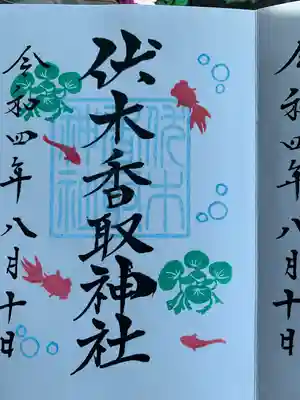 伏木香取神社
令和四年八月十日
伏木香取神社
令和四年八月十日